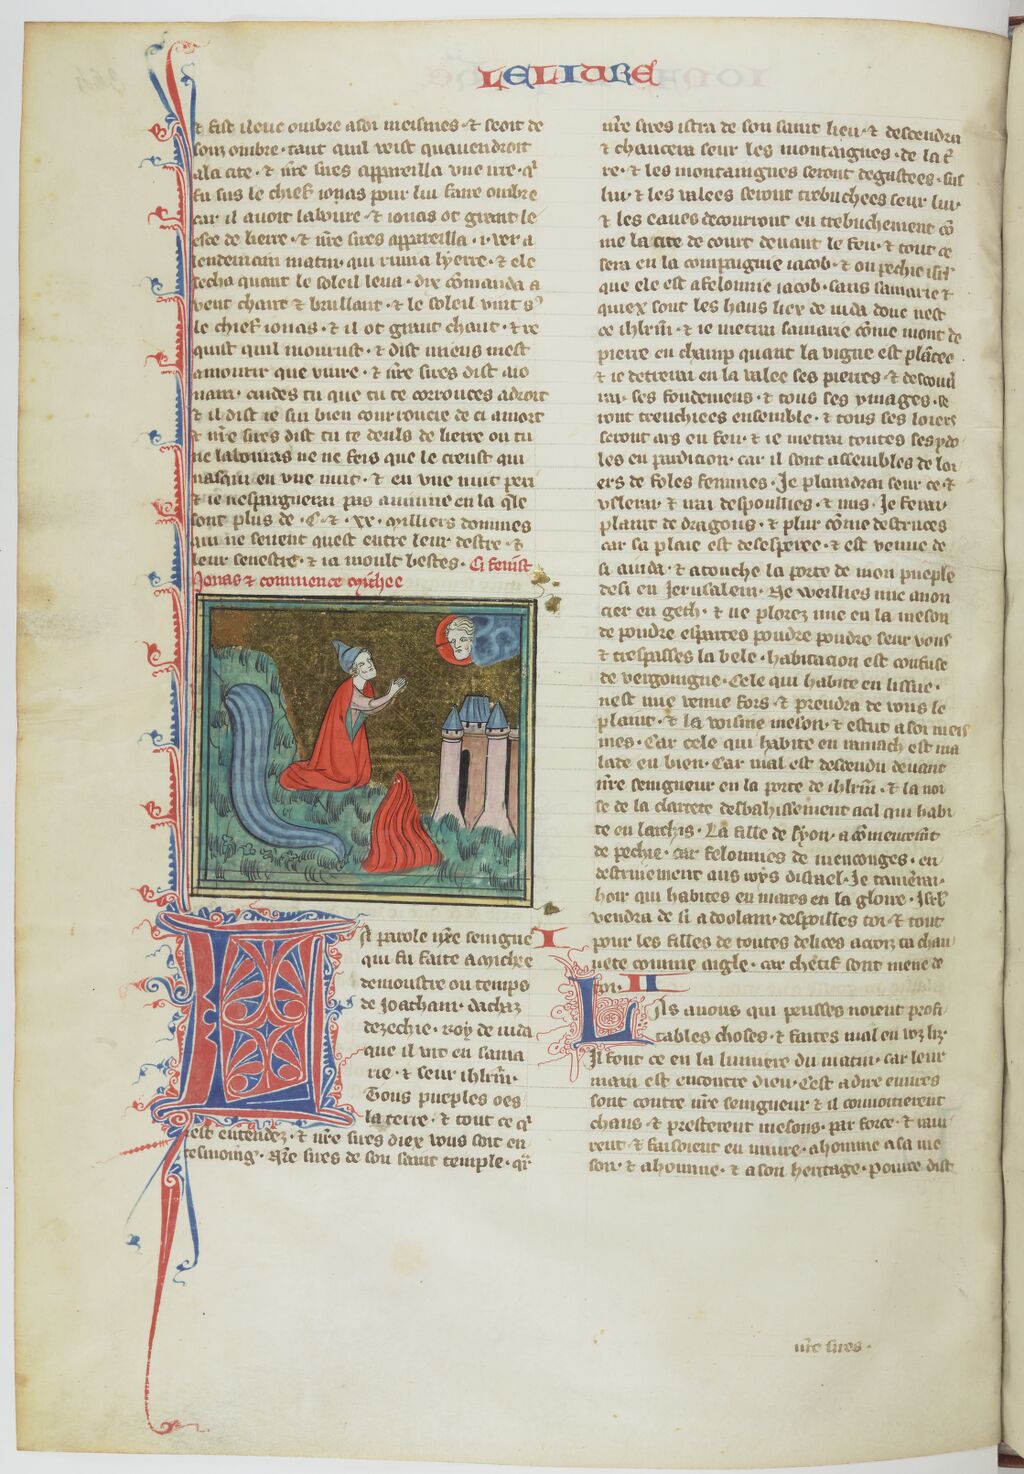 LELIURE
& fist ileuc ombre a soi meismes · & seoit de
souz ombre · tant quil veist quauendroit
ala cite · & nr̃e sires appareilla vne
fu sus le chief ionas pour lui faire ombre
car il auoit laboure · & ionas ot grant le
esce de lierre · & nr̃e sires appareilla · i · ver a
lendemain matin · qui ruina lyerre · & ele
secha quant le soleil leua · dix cõmanda a
vent chaut & brullant · & le soleil vint s᷑
le chief ionas · & il ot grant chaut · & re
quist quil mourust · & dist mieus mest
amourir que viure · & nr̃e sires dist aio
nam · cuides tu que tu te corrouces adroit
& il dist ie sui bien courroucie de ci amort
& nr̃e sires dist tu te deuls de lierre ou tu
ne labouras ne ne feis que le creust qui
nasqui en vne nuit · & en vne nuit peri
& ie nesparguerai pas a niniue en la q̃le
sont plus de · C · & · xx · milliers dommes
qui ne seuent quest entre leur destre · &
leur senestre · & ia moult bestes · Ci fenist
Ionas & commence michee
La parole nr̃e seingne᷑ I
qui fu faite a michee
demoustre ou temps
de Joathan · dachaz
dezechie · roy de iuda
que il vit en sama
rie · & seur ihl̃rm̃ ·
Tous pueples oes
la terre · & tout ce q̃
est entendez · & nr̃e sires diex vous soit en
tesmoing · Nr̃e sires de son saint temple · q̃r
nr̃e sires istra de son saint lieu · & descendra
& chaucera seur les montaigues · de la t̃
re · & les montaingues seront degastees · sus
lui · & les valees seront trebuchees seur lui ·
& les eaues decourront en trebuchement cõ
me la cire de court deuant le feu · & tout ce
sera en la compaignie iacob · & ou pechie isrl̃
que ele est afelounie iacob · saus samarie &
quiex sont les haus liex de iuda donc nest
ce ihl̃rm̃ · & ie metrai samarie cõme mont de
pierre en champ quant la vigne est plãtee
& ie detrerai en la valee ses pierres · & descou
rai · ses fondemens · & tous ses ymages · se
ront trenchiees ensemble · & tous ses loiers
seront ars en feu · & ie metrai toutes ses ydo
les en perdicion · car il sont assembles de loi
ers de foles femmes · Je plaindrai seur ce · &
vslerai · & irai despoullies · & nus · Je ferai
plaint de dragons · & plur cõme destruces
car sa plaie est desesperee · & est venue de
si a iuda · & atouche la porte de mon pueple
desi en Jerusalem · Ne weillies mie anon
cier en geth · & ne plorez mie en la meson
de poudre espartes poudre poudre seur vous
& trespasses la bele · habitacion est confuse
de vergoingne · Cele qui habite en lissue ·
nest mie venue fors · & prendra de vous le
plaint · & la voisine meson · & estut a soi meis
mes · Car cele qui habite en marach est ma
lade en bien · Car mal est descendu deuant
nr̃e seingneur en la porte de ihl̃rm̃ · & la noi
se de la charete desbahissement a cil qui habi
te en lachis · La fille de syon · a cõmencemt̃
de pechie · car felonnies de menconges · en
destruiement aus roys disrael · Je tamerai ·
hoir qui habites en mares en la gloire · Isrl̃
vendra de si adoolam · despoilles toi · & tout
pour les filles de toutes delices acroiz ta chau
uete comme aigle · car chetif sont mene de
toi · II
Las a vous qui pensses noient profi
tables choses · & faites mal en voz liz ·
Il font ce en la lumiere du matin · car leur
main est encontre dieu · Cest a dire eures
sont contre nr̃e seingneur & il conuoitierent
chans · & prestrent mesons · par force · & raui
rent & faisoient en iniure · a homme a sa me
son · & a homme · & a son heritage · Pource dist
nr̃e sires ·